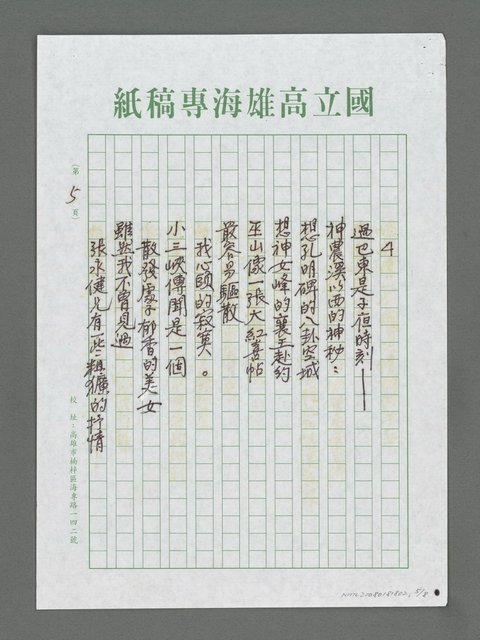 國立高雄海專稿紙
4
過巴東是子夜時刻——
神農溪以西的神秘：
想孔明碑的八卦空城
想神女峰的襄王赴約
巫山像一張大紅喜帖
最容易驅散
我心頭的寂寞。
小三峽傳聞是一個
散發處子郁香的美女
雖然我不曾見過
張水健兒有些粗獷的抒情
（第5頁）
校址：高雄市楠梓區海專路一四二號
NMTL20080181802, 5/8